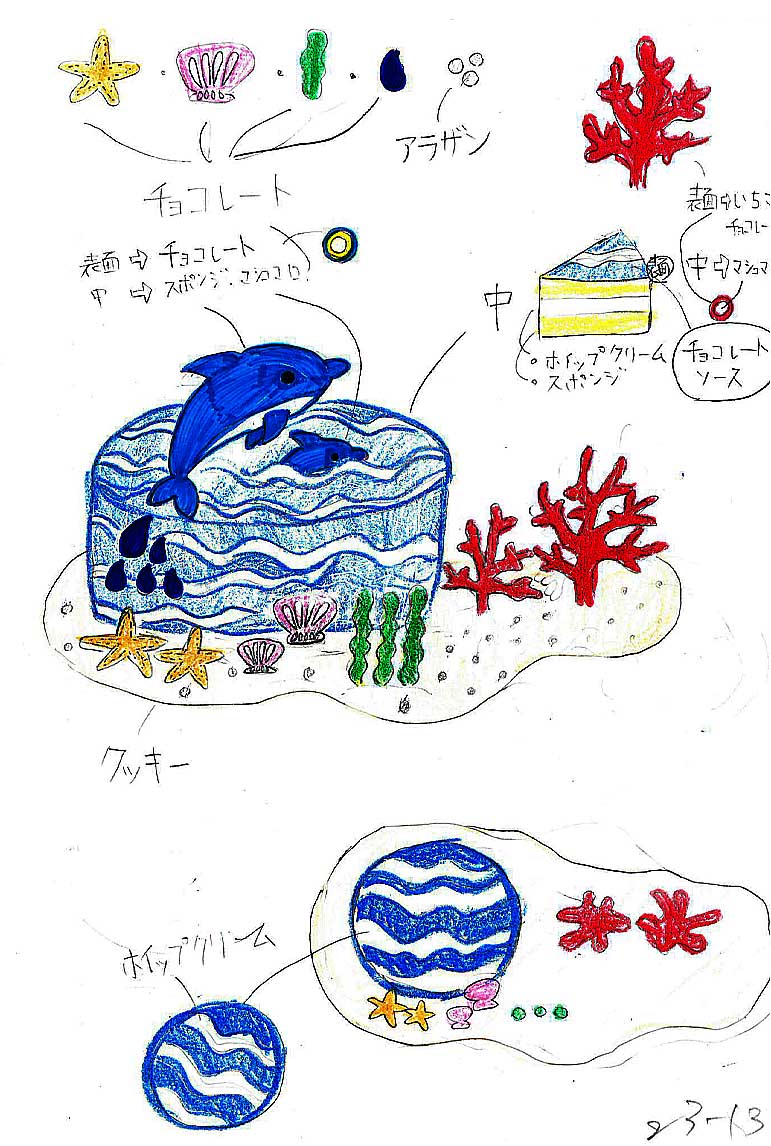 アラザン
チョコレート
表面⇨チョコレート
中⇨スポンジ・マシュマロ
表面⇨いちご
チョコレー
中⇨マシュマ
中
麺
・ホイップクリーム
・スポンジ
チョコレート
ソース
クッキー
ホイップクリーム
23-13